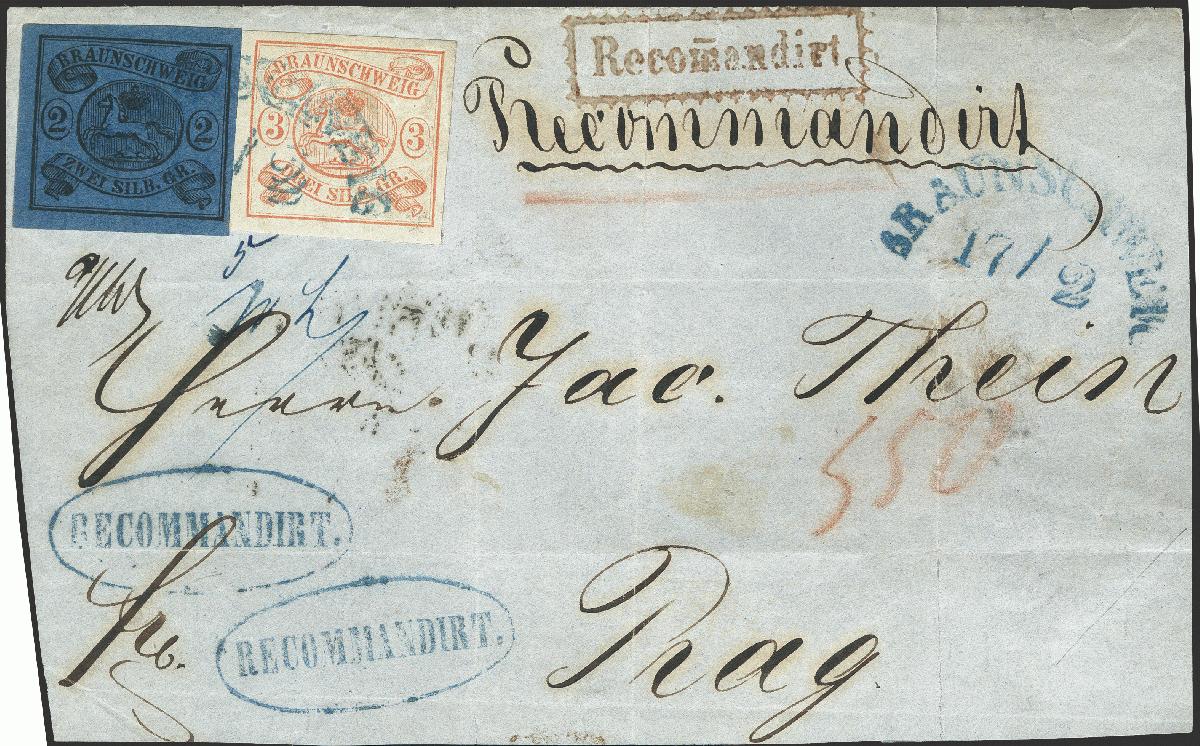 BRAUNSCHWEIG
2 2
ZWEI SILB. GR.
BRAUNSCHWEIG
3 3
DREI SILB. GR.
Recom̅andirt
Recommandirt
BRAUNSCHWEIG
17/2
5
Herrn Jac. Thein
550
RECOMMANDIRT.
fro. Prag
RECOMMANDIRT.